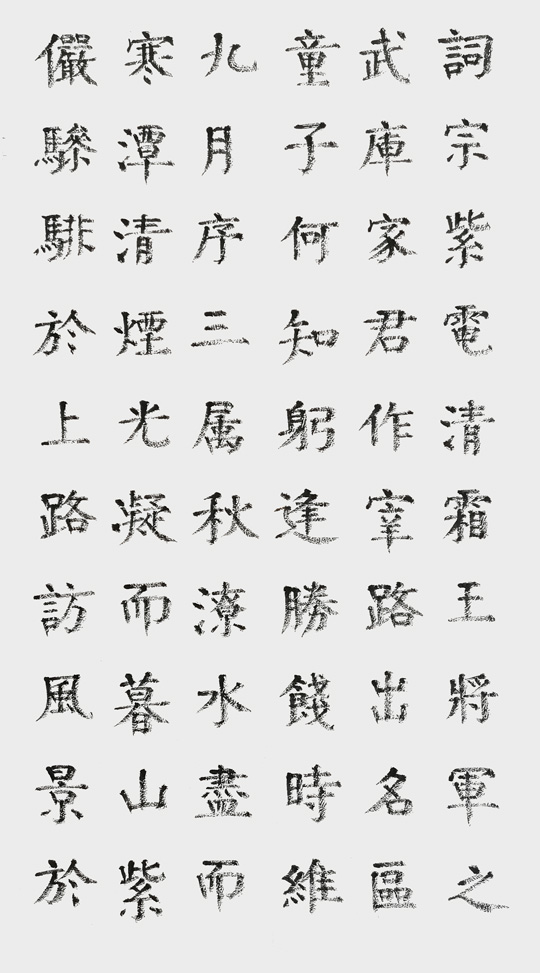 詞宗紫電清霜王將軍之
武庫家君作宰路出名區
童子何知躬逢勝餞時維
九月序三属秋潦水盡而
寒潭清煙光凝而暮山紫
儼驂騑於上路訪風景於